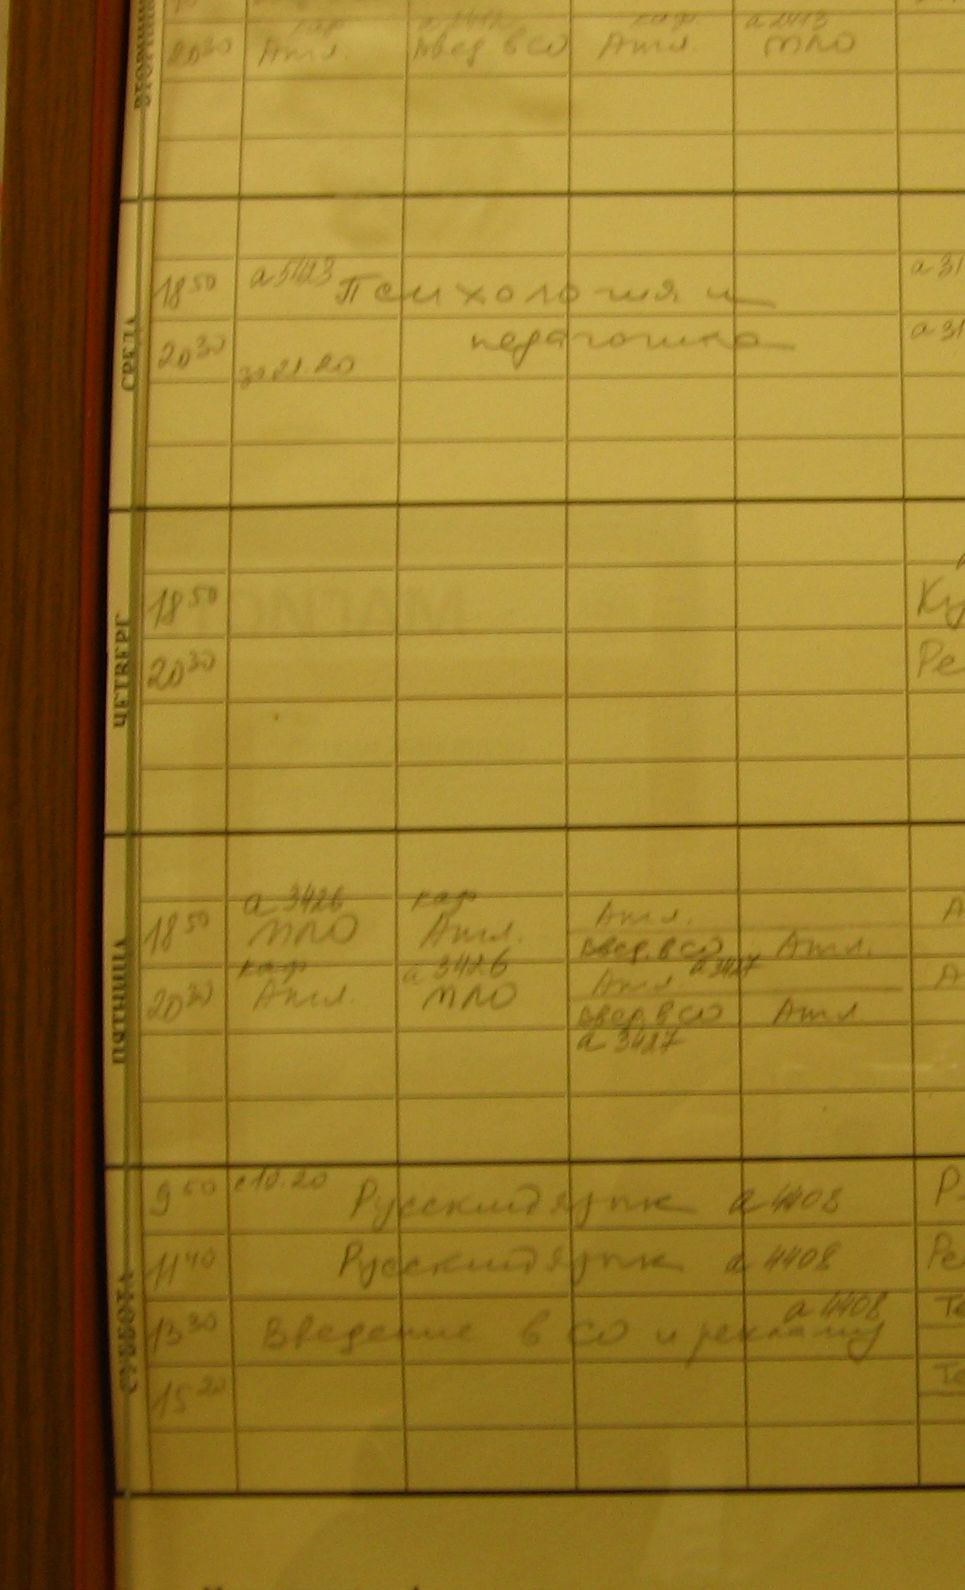 ВТОРНИК
каф а 2413
20 30 Англ. Введ в СО Англ. МЛО
СРЕДА
18 50 а 5423 Психология и а 31
20 30 педагогика а 31
до 21.20
ЧЕТВЕРГ
18 50
20 30 Ре
ПЯТНИЦА
а 3426 каф
18 50 МЛО Англ. Англ. А
Введ. в СО Англ.
каф а 3426 а 3427
20 30 Англ. МЛО Англ. А
Введ. в СО Англ
а 3427
СУББОТА
9 50 с 10.20 Русский язык а 4408 Р
11 40 Русский язык а 4408 Ре
а 4408
13 30 Введение в СО и рекламу Те
15 20 Те